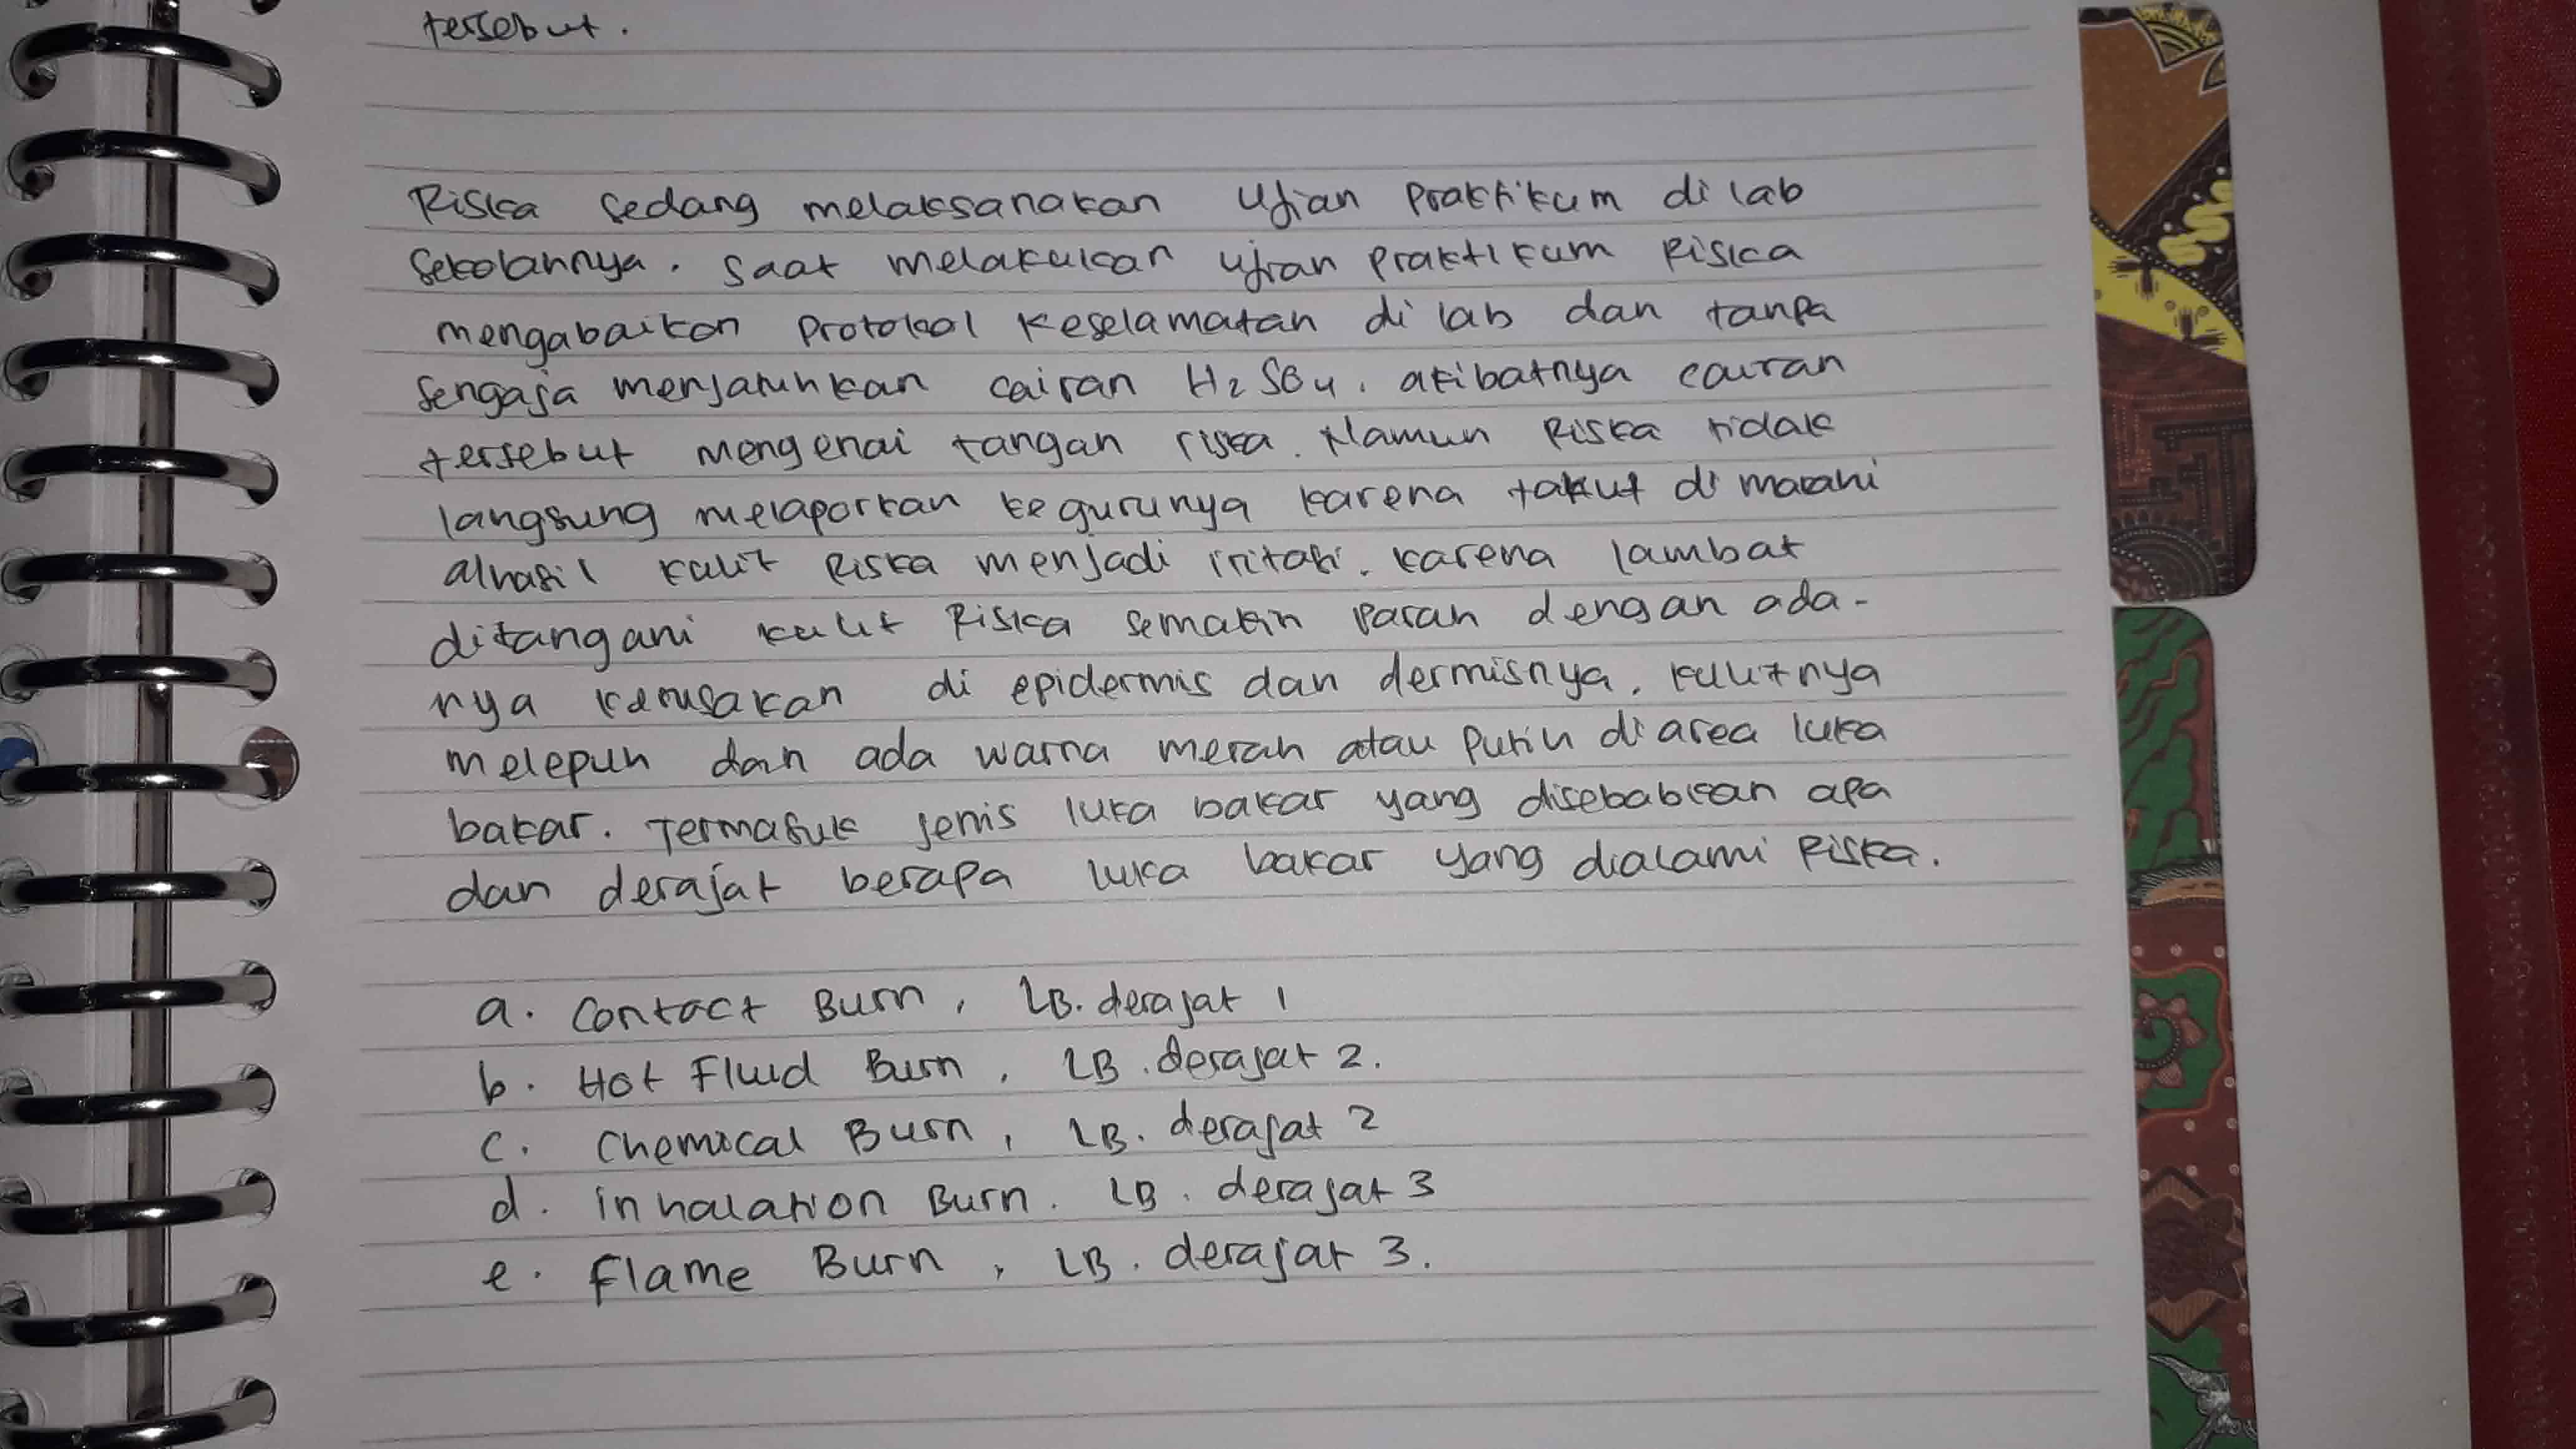 tersebut.
Riska sedang melaksanakan Ujian Praktikum di lab
sekolahnya. Saat melakukan ujian praktikum Riska
mengabaikan protokol keselamatan di lab dan tanpa
sengaja menjatuhkan cairan H2SO4. akibatnya cairan
tersebut mengenai tangan riska. Namun Riska tidak
langsung melaporkan kegurunya karena takut dimarahi
alhasil kulit Riska menjadi iritasi. karena lambat
ditangani kulit Riska semakin parah dengan ada-
nya kerusakan di epidermis dan dermisnya. kulitnya
melepuh dan ada warna merah atau putih diarea luka
bakar. Termasuk jenis luka bakar yang disebabkan apa
dan derajat berapa luka bakar yang dialami Riska.
a. Contact Burn, LB. derajat 1
b. Hot Fluid Burn, LB. derajat 2.
c. Chemical Burn, LB. derajat 2
d. inhalation Burn. LB. derajat 3
e. Flame Burn, LB. derajat 3.